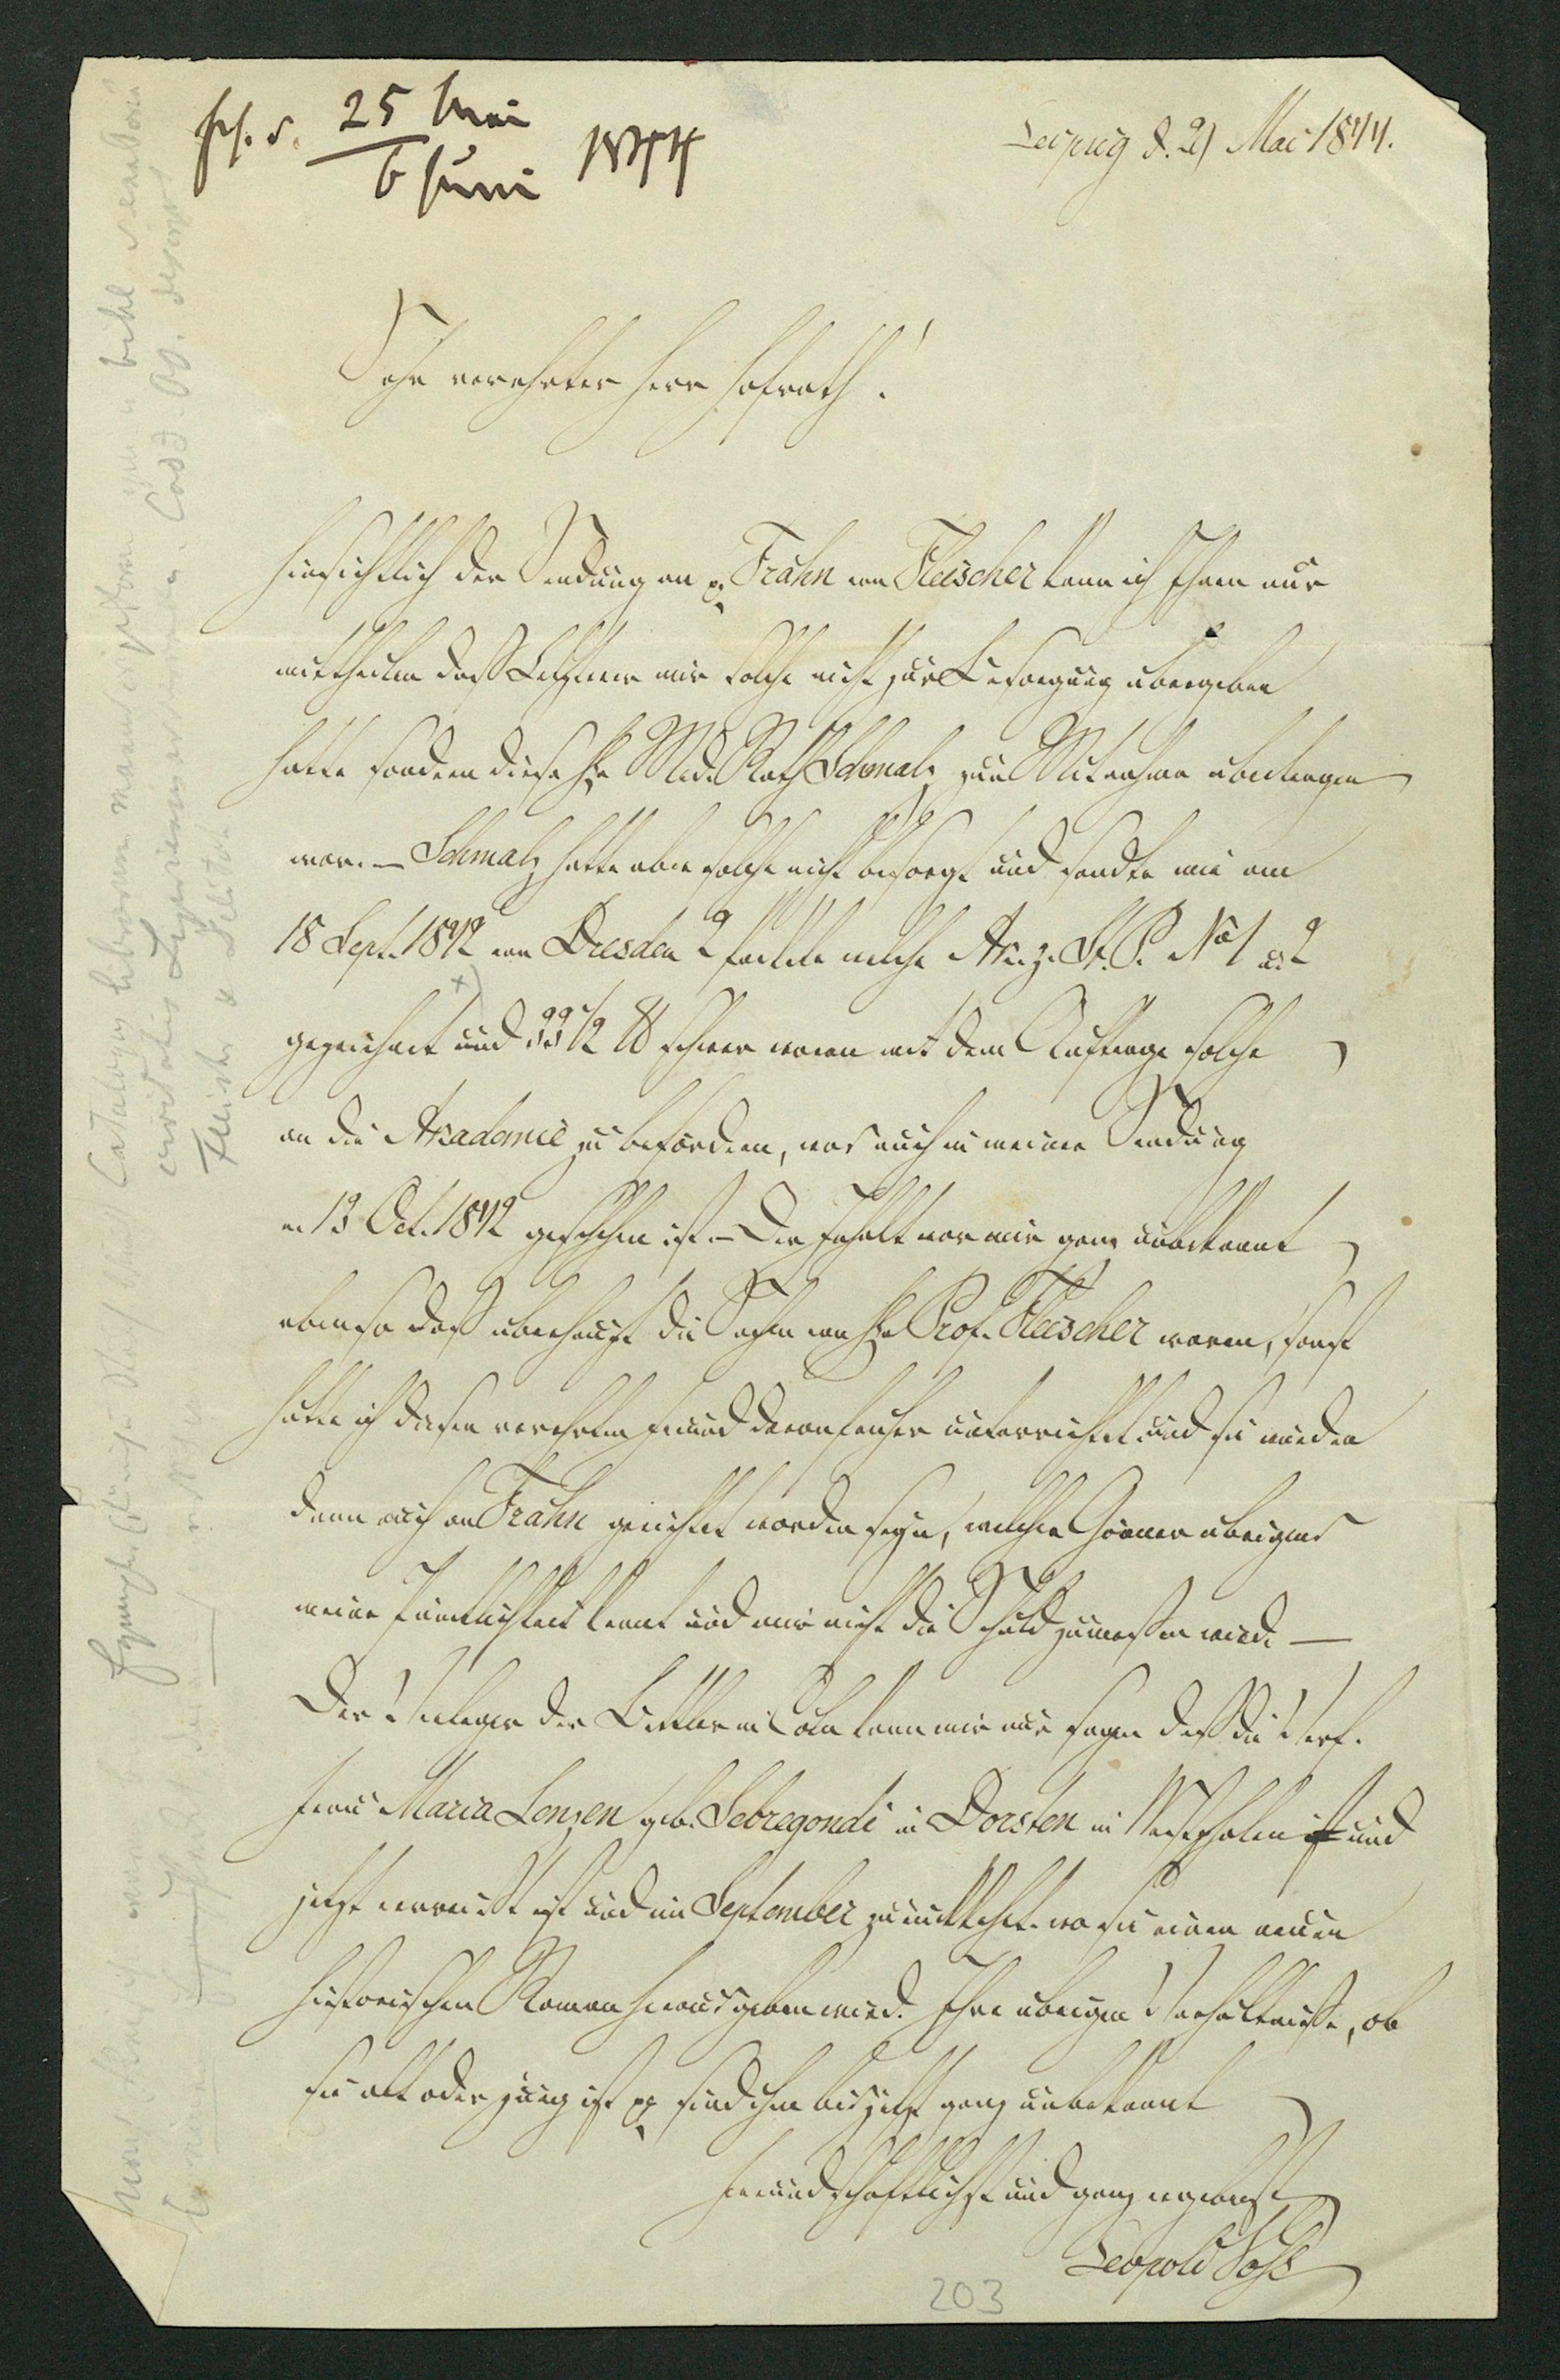 erh. d. 25 Mai / 6 Juni 1844
Leipzig d. 21 Mai 1844.
Sehr verehrter Herr Hofrath!
Hinsichtlich der Sendung an p. Frähn von Fleischer kann ich Ihnen nur
mittheilen daß Letzterer mir solche nicht zur Besorgung übergeben
hatte sondern diese H. Med. Rath Schmalz zur Mitnahme übertragen
war. – Schmalz hatte aber solche nicht besorgt und sandte mir am
18 Sept. 1842 von Dresden 2 Packete welche A. z. St. P. No 1 u. 2
gezeichnet und 33 1/2 ℔ schwer waren mit dem Auftrage solche
an die Akademie zu befördern, was auch in meiner Sendung
v. 13 Oct. 1842 geschehen ist. – Der Inhalt war mir ganz unbekannt
ebenso daß überhaupt die Sachen von H. Prof. Fleischer waren, sonst
hätte ich diesen verehrten Freund davon früher unterrichtet und sie würden
dann auch an Frähn gerichtet worden seyn, welcher Gönner übrigens
meine Pünktlichkeit kennt und mir nicht die Schuld zumessen wird. –
Der Verleger der Bettlerin Cöln kann mir nur sagen daß die Verf.
Frau Maria Lenzen geb. Sebregondi in Dorsten in Westphalen ist und
jetzt verreist ist und im September zurückkehrt. wo sie einen neuen
historischen Roman herausgeben wird. Ihre übrigen Verhältnisse, ob
sie alt oder jung ist pp sind ihm bis jetzt ganz unbekannt
Freundschaftlichst und ganz ergebenst
Leopold Voß
203
Catalogus librorum manuscriptorum qui in bibl. senatoria
civitatis Lipsiensis Codd. OO. descrips.
Fleischer & Delitzsch